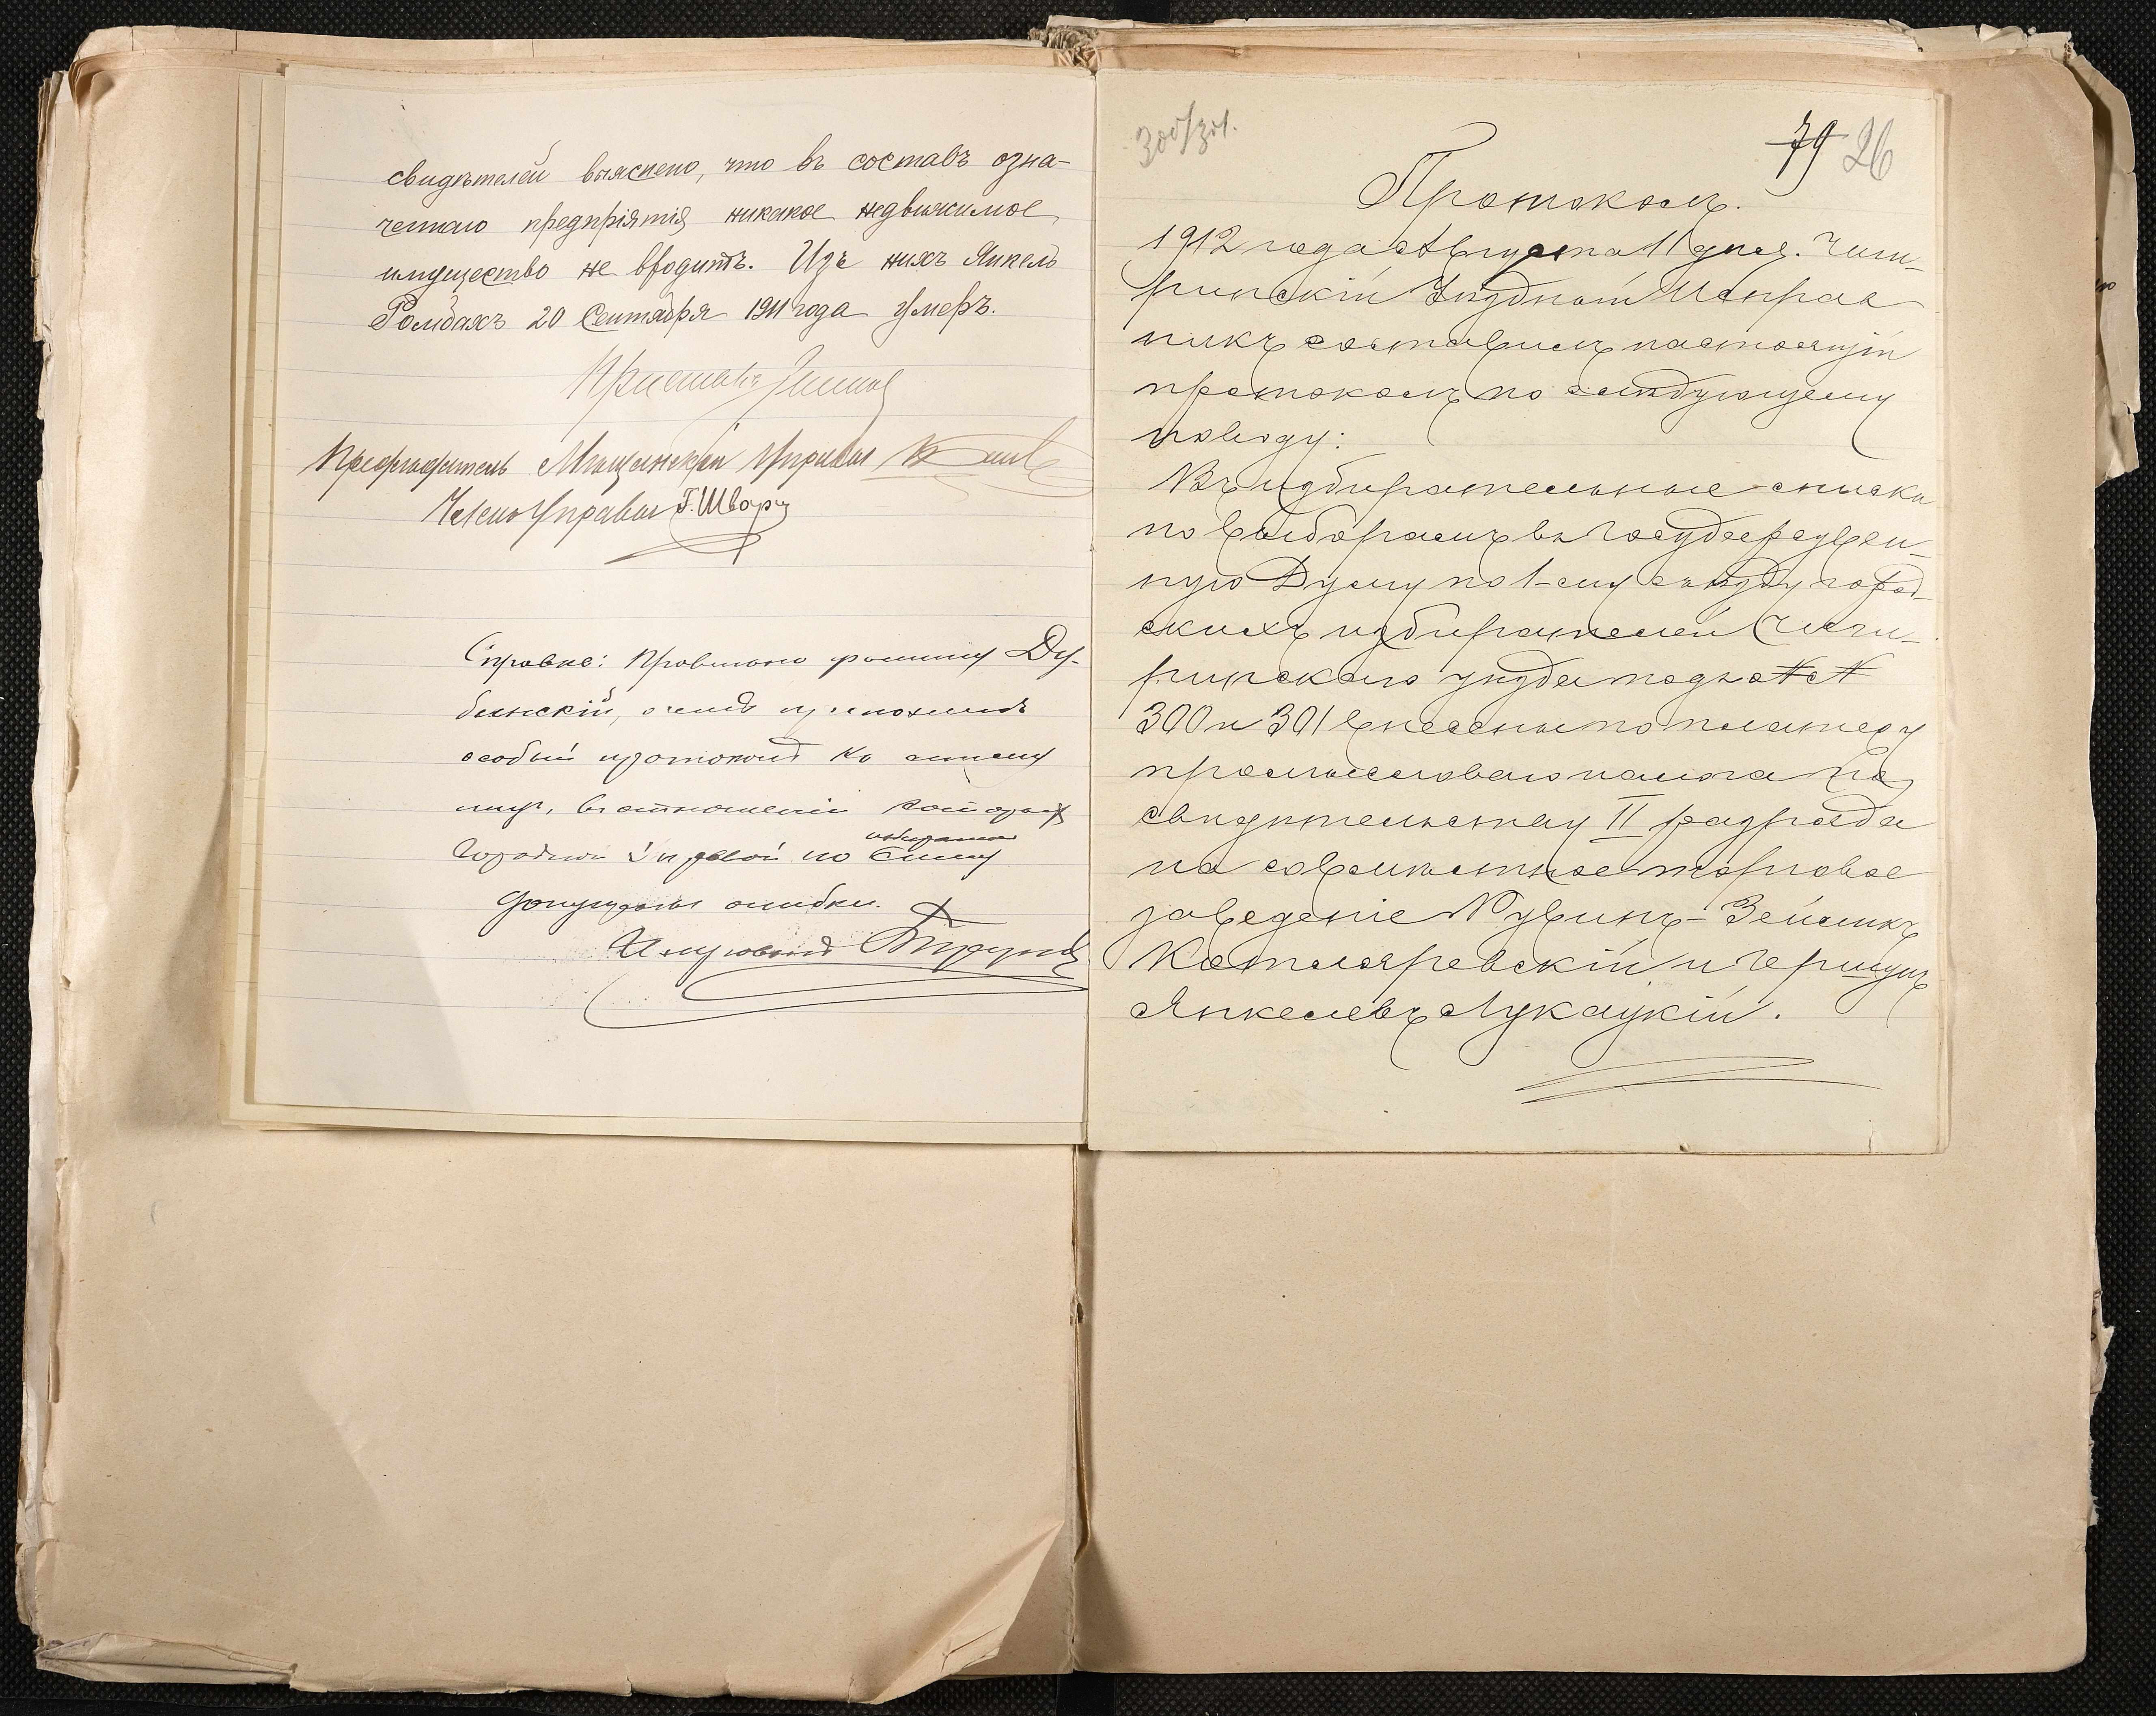 свидѣтелей выяснено, что въ составъ озна-
ченнаго предпріятія никакое недвижимое
имущество не входитъ. Изъ нихъ Янкель
Ромбахъ 20 Сентября 1911 года умеръ.
Приставъ
Председатель Мѣщанской Управы
Членъ Управы Г. Шварц
Справка: Провѣрено фамилія Ду-
бинскій, о чемъ приложенъ
особый протоколъ къ списку
лицъ, въ отношеніи которыхъ
Городской Управой по
допущены ошибки.
Исправникъ
300/301.
79 26
Протоколъ.
1912 года Августа 11 дня. Чиги-
ринскій Уѣздный Исправ
никъ составилъ настоящій
протоколъ по слѣдующему
поводу:
Въ избирательные списки
по выборамъ въ Государствен-
ную Думу по 1-му съѣзду город-
скихъ избирателей Чиги-
ринскаго уѣзда подъ №№
300 и 301 внесены по платежу
промысловаго налога по
свидѣтельству II разряда
на совмѣстное торговое
заведеніе Рувинъ-Зейликъ
Котляревскій и Гершунъ
Янкелевъ Лукацкій.